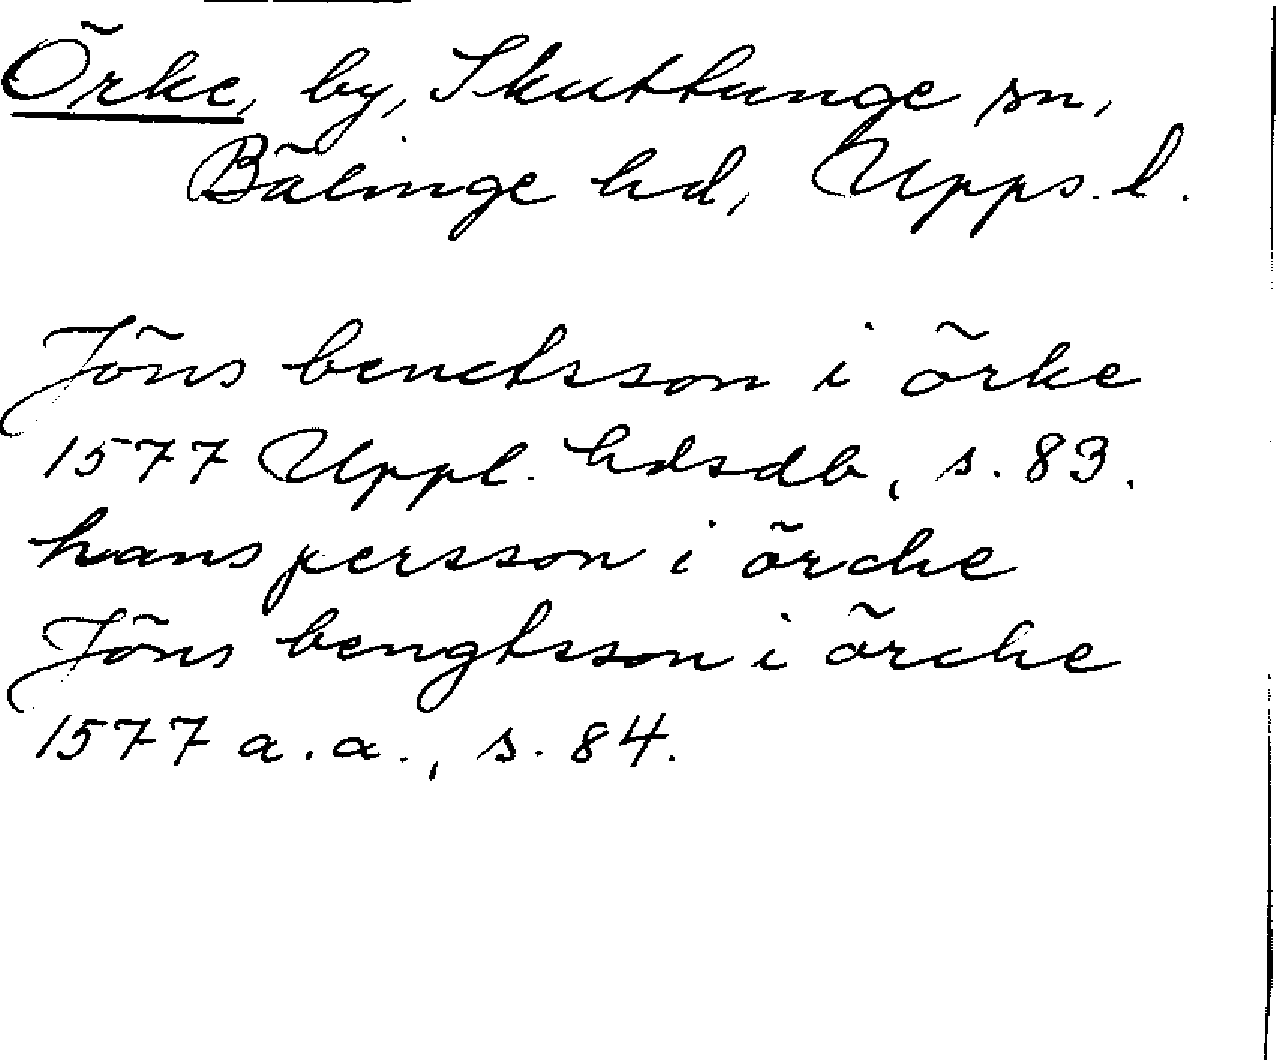 Örke, by, Skuttunge sn,
Bälinge hd, Upps. l.
Jöns bendtsson i örke
1577 Uppl. hdsdb, s. 83.
hans persson i örche
Jöns bengtsson i örche
1577 a.a., s. 84.